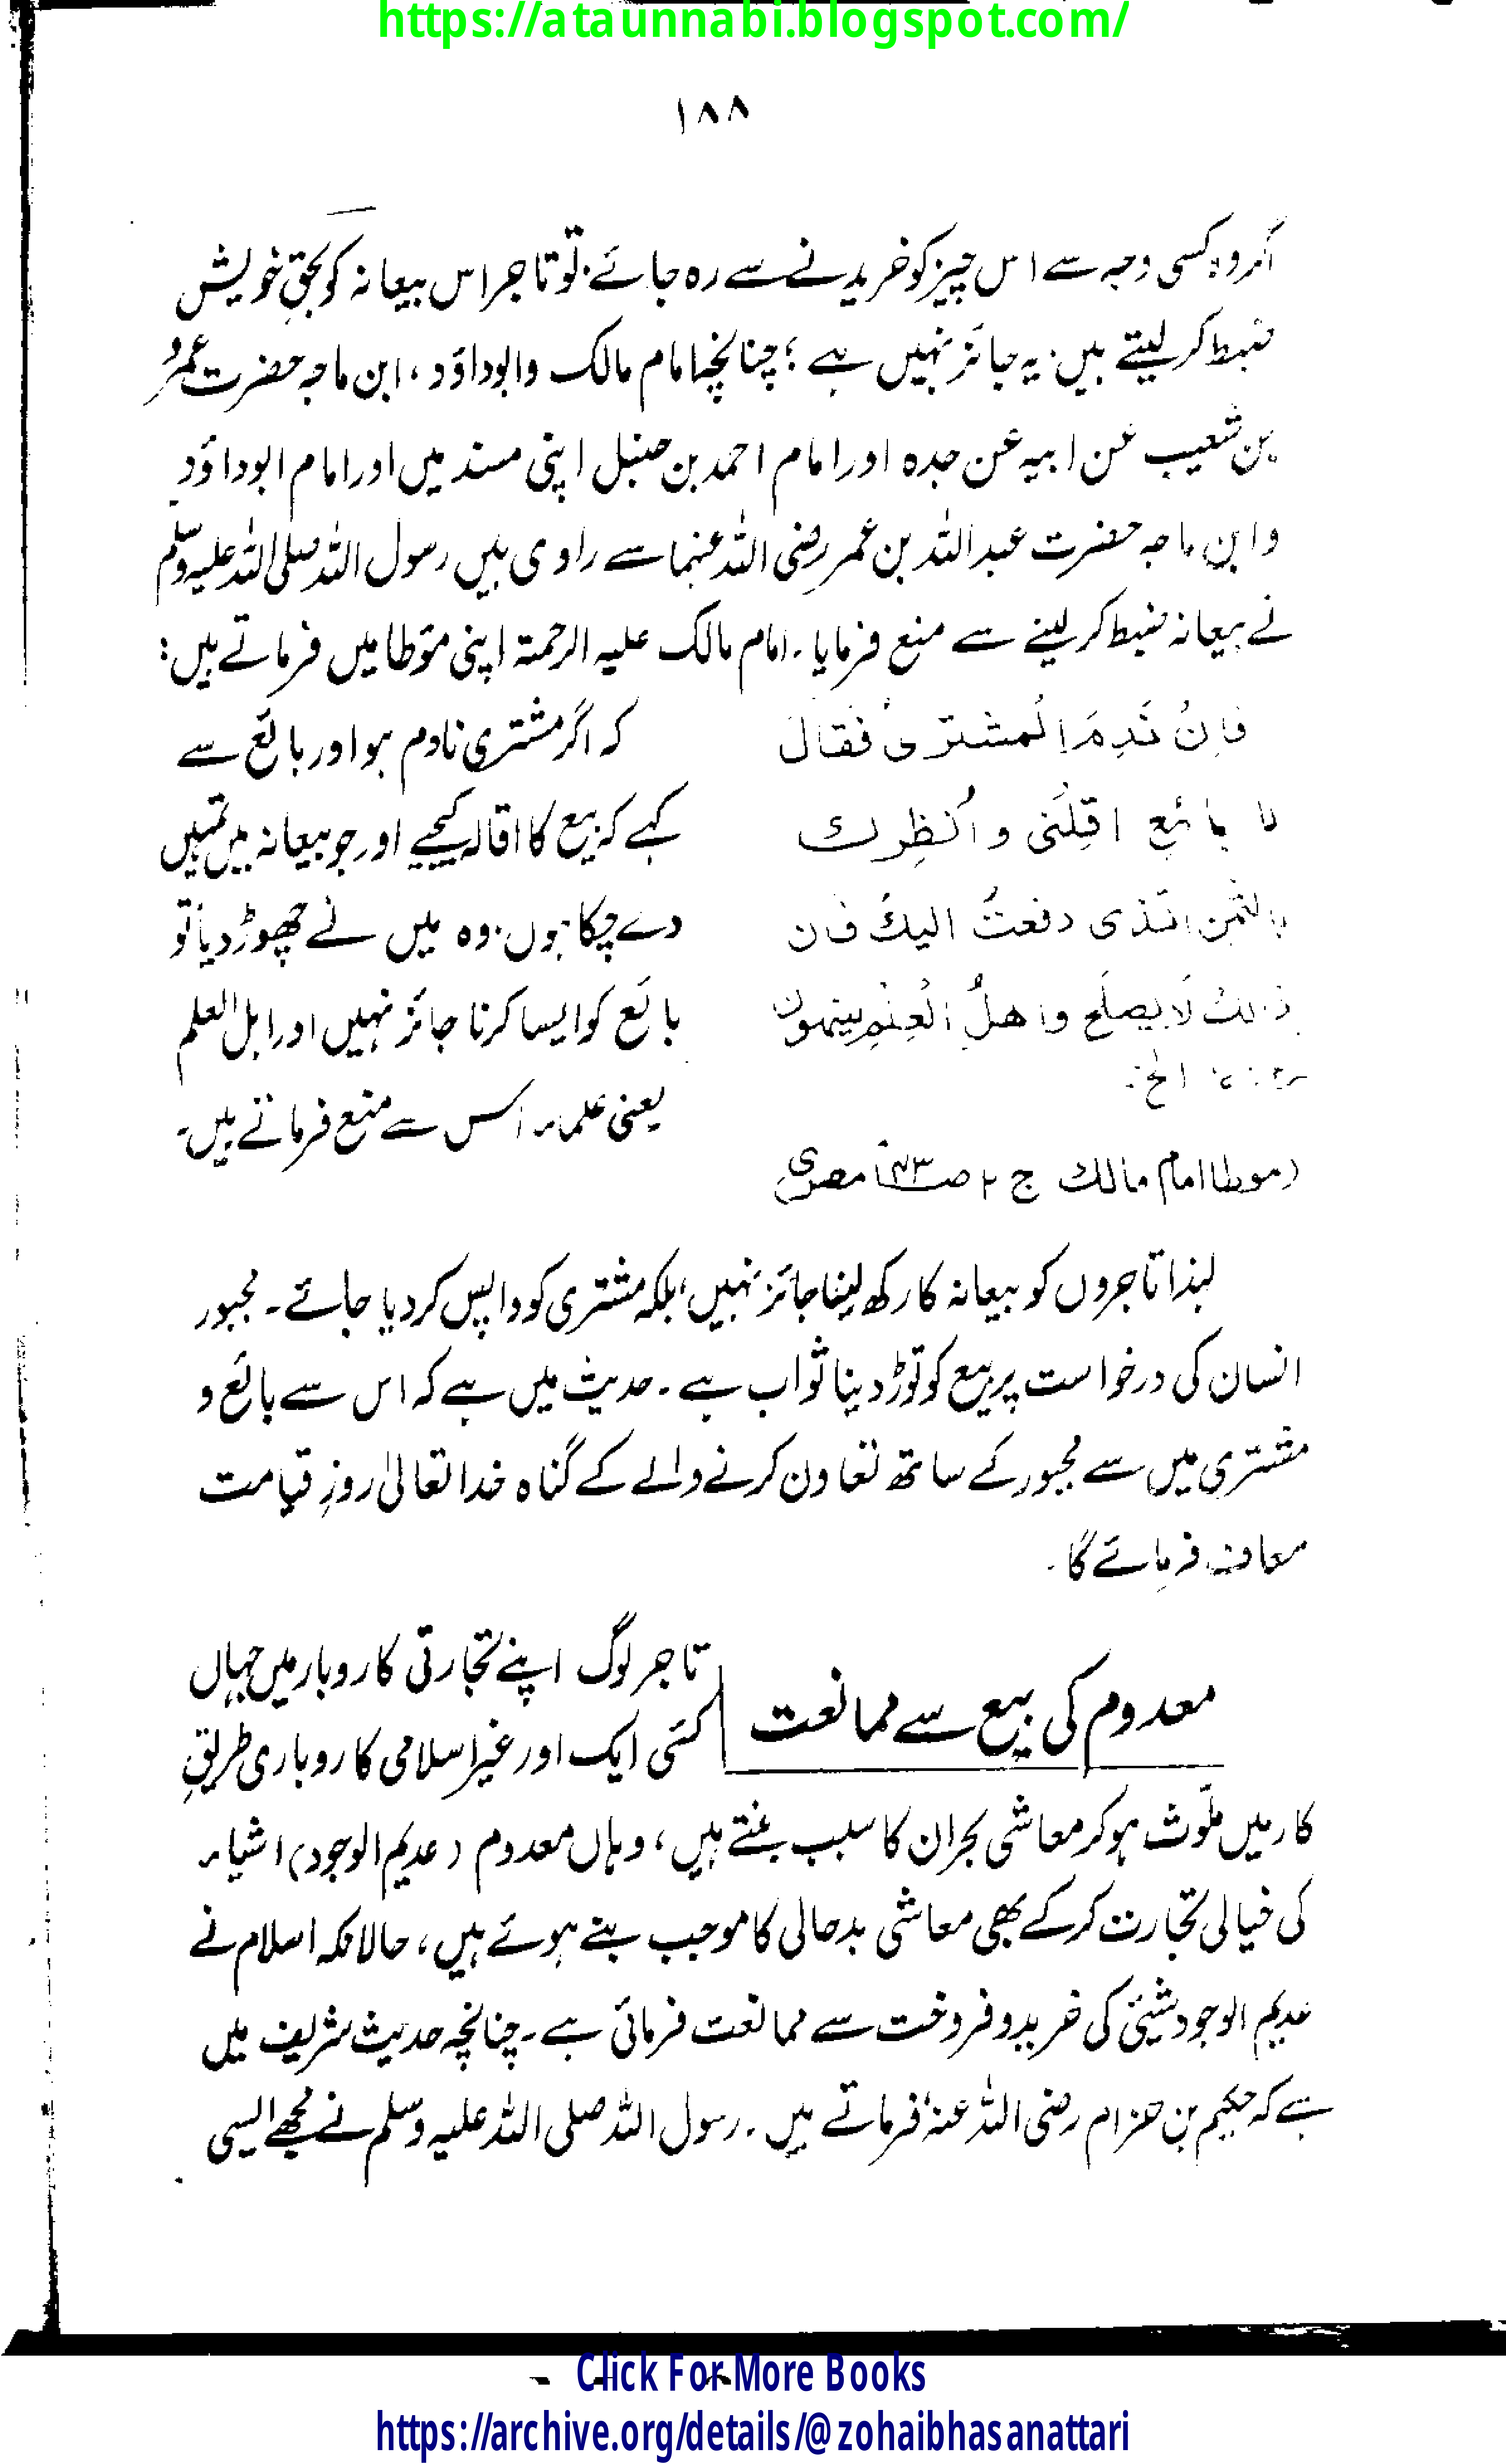 https://ataunnabi.blogspot.com/
۱۸۸
اگر وہ کسی وجہ سے اس چیز کو خریدنے سے رہ جائے. تو تاجر اس بیعانہ کو بحقِ خویش
ضبط کر لیتے ہیں. یہ جائز نہیں ہے ؛ چنانچہ امام مالک وابوداؤد ، ابن ماجہ حضرت عمرو
بن شعیب عن ابیہ عن جدہ اور امام احمد بن حنبل اپنی مسند میں اور امام ابوداؤد
وابن ماجہ حضرت عبداللہ بن عمر رضی اللہ عنہما سے راوی ہیں رسول اللہ صلی اللہ علیہ وسلم
نے بیعانہ ضبط کر لینے سے منع فرمایا ۔ امام مالک علیہ الرحمۃ اپنی مؤطا میں فرماتے ہیں :
فاِنْ نَدِمَ اِلُمشترىُ فَقالَ
لا بائعِ اقِلْنى و اُنظِرك
بالثمنِ الّذى دفعتُ اليكَ فان
ذالكَ لَا يصلَح واهلُ الْعِلْمِ ينهون
الخ
(موطا امام مالك ج ۲ ص مصرى)
کہ اگر مشتری نادم ہو اور بائع سے
کہے کہ بیع کا اقالہ کیجیے اور جو بیعانہ میں تمہیں
دے چکا ہوں. وہ میں نے چھوڑ دیا تو
بائع کو ایسا کرنا جائز نہیں اور اہل العلم
یعنی علماء اس سے منع فرماتے ہیں ۔
لہٰذا تاجروں کو بیعانہ کا رکھ لینا جائز نہیں، بلکہ مشتری کو واپس کر دیا جائے ۔ مجبور
انسان کی درخواست پر بیع کو توڑ دینا ثواب ہے ۔ حدیث میں ہے کہ اس سے بائع و
مشتری میں سے مجبور کے ساتھ تعاون کرنے والے کے گناہ خدا تعالیٰ روزِ قیامت
معاف فرمائے گا ۔
معدوم کی بیع سے ممانعت
تاجر لوگ اپنے تجارتی کاروبار میں جہاں
کئی ایک اور غیر اسلامی کاروباری طریقِ
کار میں ملوّث ہو کر معاشی بحران کا سبب بنتے ہیں ، وہاں معدوم (عدیم الوجود) اشیاء
کی خیالی تجارت کر کے بھی معاشی بدحالی کا موجب بنے ہوئے ہیں ، حالانکہ اسلام نے
عدیم الوجود شیئی کی خرید و فروخت سے ممانعت فرمائی ہے ۔ چنانچہ حدیث شریف میں
ہے کہ حکیم بن حزام رضی اللہ عنہٗ فرماتے ہیں ۔ رسول اللہ صلی اللہ علیہ وسلم نے مجھے ایسی
Click For More Books
https://archive.org/details/@zohaibhasanattari